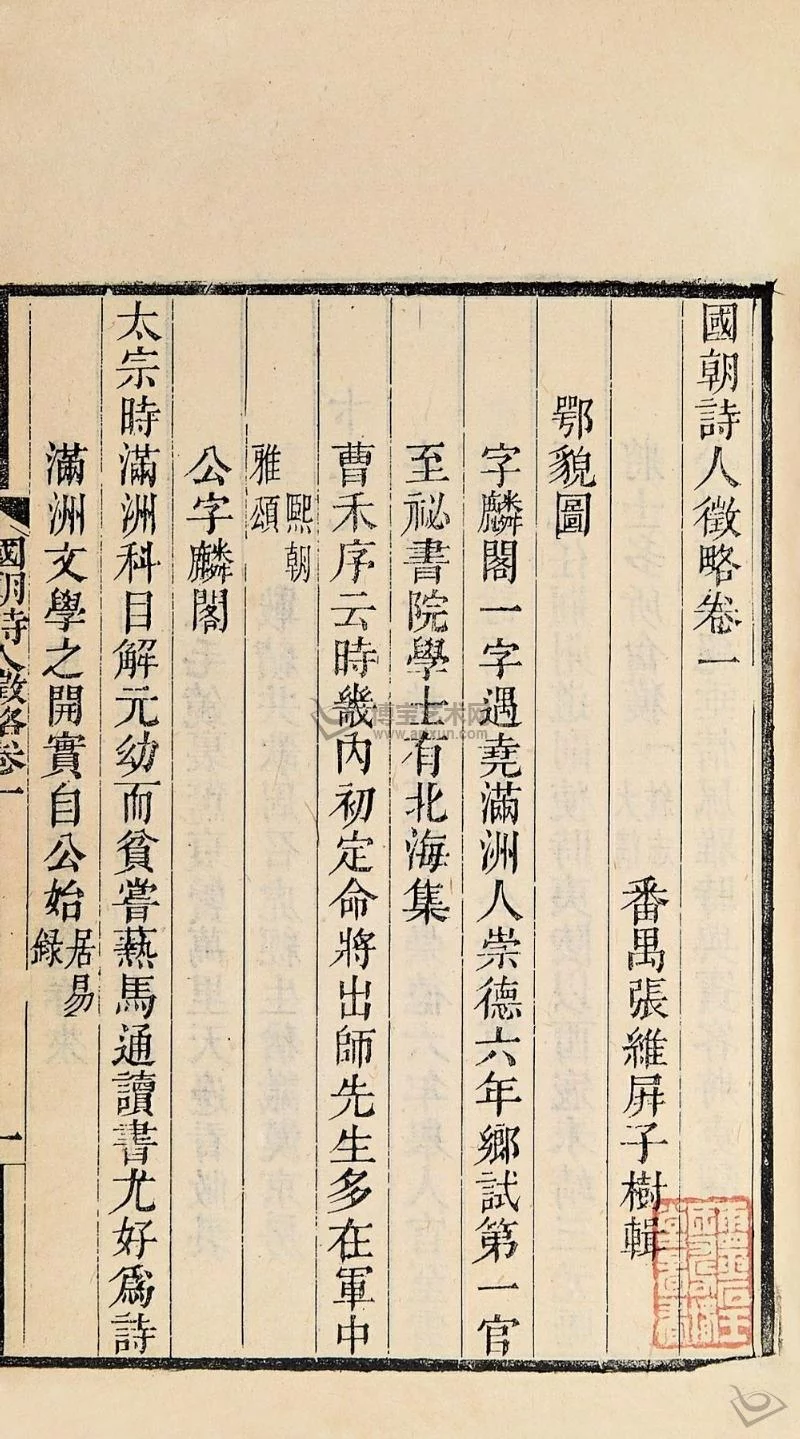 國朝詩人徵略卷一
番禺張維屏子樹輯
鄂貌圖
字麟閣一字遇堯滿洲人崇德六年鄉試第一官
至祕書院學士有北海集
曹禾序云時畿內初定命將出師先生多在軍中
熙朝
雅頌
公字麟閣
太宗時滿洲科目解元幼而貧嘗爇馬通讀書尤好爲詩
滿洲文學之開實自公始居易
録
國朝詩人徵略卷一
一
博宝艺术网
www.artxun.com